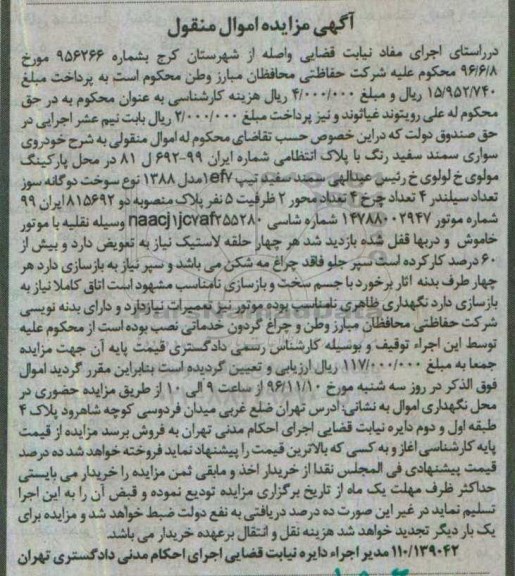 آگهی مزایده اموال منقول
درراستای اجرای مفاد نیابت قضایی واصله از شهرستان کرج بشماره ۹۵۶۲۶۶ مورخ
۹۶/۶/۸ محکوم علیه شرکت حفاظتی محافظان مبارز وطن محکوم است به پرداخت مبلغ
۱۵/۹۵۲/۷۴۰ ریال و مبلغ ۴/۰۰۰/۰۰۰ ریال هزینه کارشناسی به عنوان محکوم به در حق
محکوم له علی رویتوند غیاثوند و نیز پرداخت مبلغ ۲/۰۰۰/۰۰۰ ریال بابت نیم عشر اجرایی در
حق صندوق دولت که دراین خصوص حسب تقاضای محکوم له اموال منقولی به شرح خودروی
سواری سمند سفید رنگ با پلاک انتظامی شماره ایران ۹۹-۶۹۲ ل ۸۱ در محل پارکینگ
مولوی خ لولوی خ رئیس عبدالهی سمند سفید تیپ ef7۱مدل ۱۳۸۸ نوع سوخت دوگانه سوز
تعداد سیلندر ۴ تعداد چرخ ۴ تعداد محور ۲ ظرفیت ۵ نفر پلاک منصوبه دو ۸۱۵۶۹۲ایران ۹۹
شماره موتور ۱۴۷۸۸۰۰۲۹۴۷ شماره شاسی naacj۱jcvaf۲۵۵۲۸۰ وسیله نقلیه با موتور
خاموش و دربها قفل شده بازدید شد هر چهار حلقه لاستیک نیاز به تعویض دارد و بیش از
۶۰ درصد کارکرده است سپر جلو فاقد چراغ مه شکن می باشد و سپر نیاز به بازسازی دارد هر
چهار طرف بدنه آثار برخورد با جسم سخت و بازسازی نامناسب مشهود است اتاق کاملا نیاز به
بازسازی دارد نگهداری ظاهری نامناسب بوده موتور نیز تعمیرات نیازدارد و دارای بدنه نویسی
شرکت حفاظتی محافظان مبارز وطن و چراغ گردون خدماتی نصب بوده است از محکوم علیه
توسط این اجراء توقیف و بوسیله کارشناس رسمی دادگستری قیمت پایه آن جهت مزایده
جمعا به مبلغ ۱۱۷/۰۰۰/۰۰۰ ریال ارزیابی و تعیین گردیده است بنابراین مقرر گردید اموال
فوق الذکر در روز سه شنبه مورخ ۹۶/۱۱/۱۰ از ساعت ۹ الی ۱۰ از طریق مزایده حضوری در
محل نگهداری اموال به نشانی: آدرس تهران ضلع غربی میدان فردوسی کوچه شاهرود پلاک ۴
طبقه اول و دوم دایره نیابت قضایی اجرای احکام مدنی تهران به فروش برسد مزایده از قیمت
پایه کارشناسی اغاز و به کسی که بالاترین قیمت را پیشنهاد نماید فروخته خواهد شد ده درصد
قیمت پیشنهادی فی المجلس نقدا از خریدار اخذ و مابقی ثمن مزایده را خریدار می بایستی
حداکثر ظرف مهلت یک ماه از تاریخ برگزاری مزایده تودیع نموده و قبض آن را به این اجرا
تسلیم نماید در غیر این صورت ده درصد دریافتی به نفع دولت ضبط خواهد شد و مزایده برای
یک بار دیگر تجدید خواهد شد هزینه نقل و انتقال برعهده خریدار می باشد.
۱۱۰/۱۳۹۰۴۲ مدیر اجراء دایره نیابت قضایی اجرای احکام مدنی دادگستری تهران